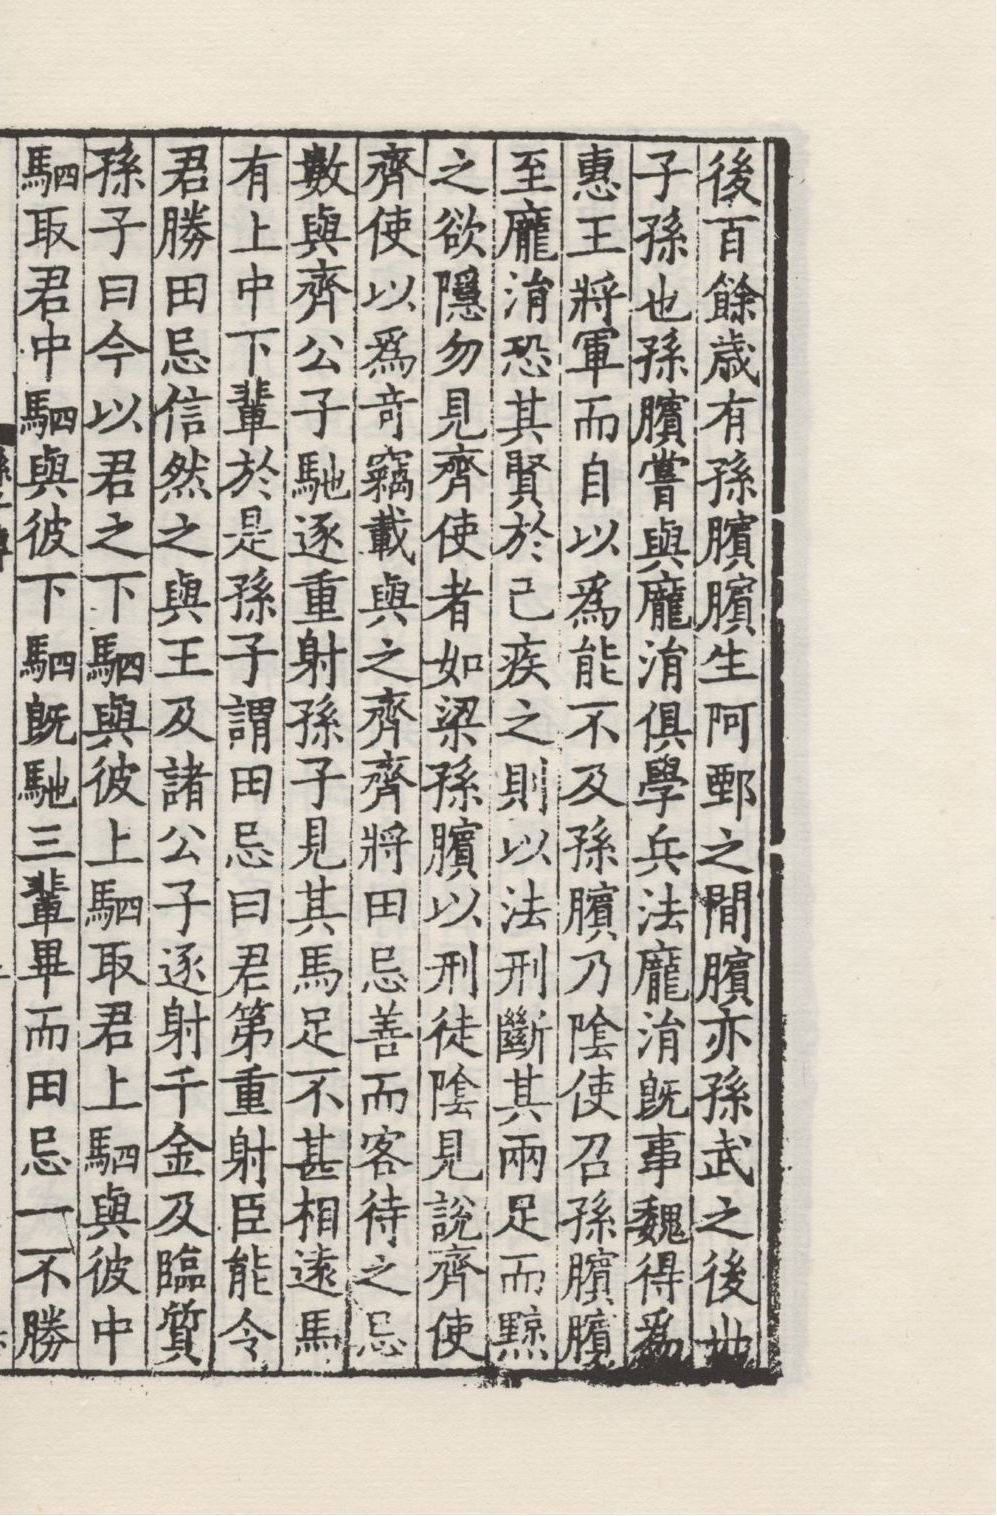 後百餘歲有孫臏臏生阿鄄之間臏亦孫武之後世
子孫也孫臏嘗與龐涓俱學兵法龐涓旣事魏得爲
惠王將軍而自以爲能不及孫臏乃陰使召孫臏臏
至龐涓恐其賢於己疾之則以法刑斷其兩足而黥
之欲隱勿見齊使者如梁孫臏以刑徒陰見說齊使
齊使以爲竒竊載與之齊齊將田忌善而客待之忌
數與齊公子馳逐重射孫子見其馬足不甚相遠馬
有上中下輩於是孫子謂田忌曰君第重射臣能令
君勝田忌信然之與王及諸公子逐射千金及臨質
孫子曰今以君之下駟與彼上駟取君上駟與彼中
駟取君中駟與彼下駟旣馳三輩畢而田忌一不勝